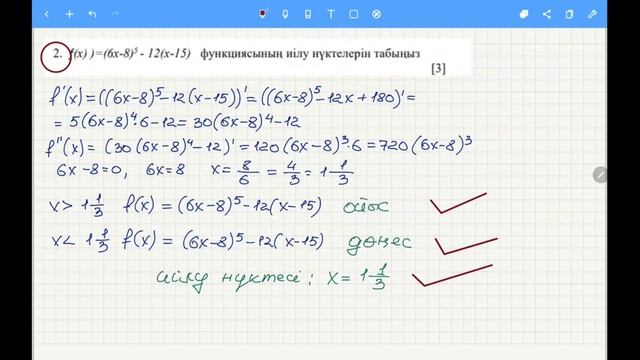 2. f(x) )=(6x-8)⁵ - 12(x-15) функциясының иілу нүктелерін табыңыз
[3]
f'(x) = ((6x-8)⁵-12(x-15))' = ((6x-8)⁵-12x+180)' =
= 5(6x-8)⁴·6-12 = 30(6x-8)⁴-12
f''(x) = (30(6x-8)⁴-12)' = 120(6x-8)³·6 = 720(6x-8)³
6x-8=0, 6x=8 x = 8/6 = 4/3 = 1 1/3
x > 1 1/3 f(x) = (6x-8)⁵-12(x-15) ойыс
x < 1 1/3 f(x) = (6x-8)⁵-12(x-15) дөңес
иілу нүктесі: x = 1 1/3